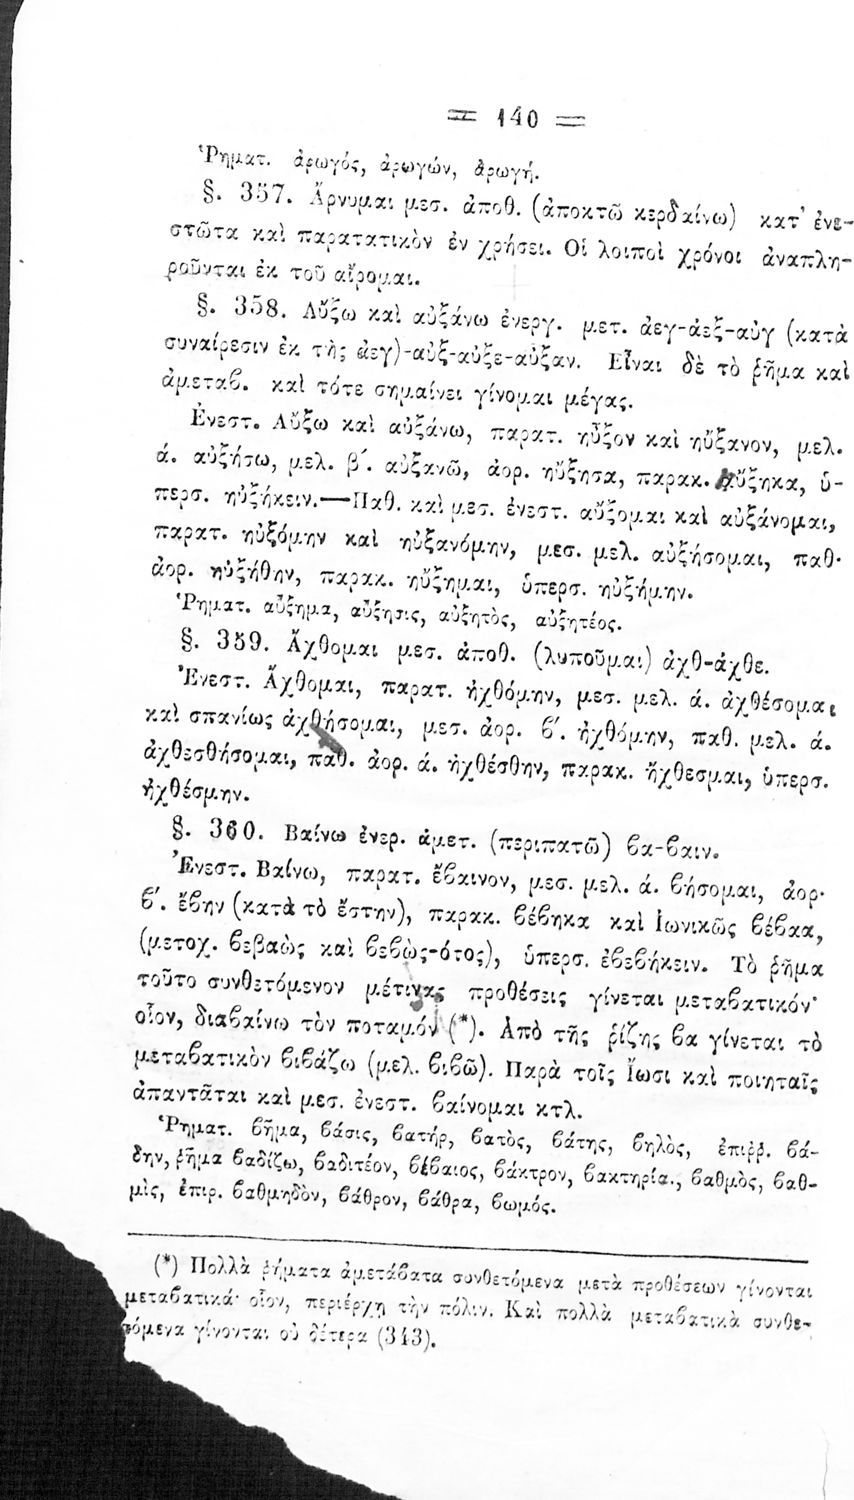 = 140 =
Ῥηματ. ἀρωγός, ἀρωγών, ἀρωγή.
§. 357. Ἄρνυμαι μεσ. ἀποθ. (ἀποκτῶ κερδαίνω) κατ' ἐνε-
στῶτα καὶ παρατατικὸν ἐν χρήσει. Οἱ λοιποὶ χρόνοι ἀναπλη-
ροῦνται ἐκ τοῦ αἴρομαι.
§. 358. Αὔξω καὶ αὐξάνω ἐνεργ. μετ. ἀεγ-ἀεξ-αὐγ (κατὰ
συναίρεσιν ἐκ τῆς ἀεγ)-αὐξ-αὐξε-αὐξαν. Εἶναι δὲ τὸ ῥῆμα καὶ
ἀμεταβ. καὶ τότε σημαίνει γίνομαι μέγας.
Ἐνεστ. Αὔξω καὶ αὐξάνω, παρατ. ηὖξον καὶ ηὔξανον, μελ.
ά. αὐξήσω, μελ. β΄. αὐξανῶ, ἀορ. ηὔξησα, παρακ. ηὔξηκα, ὑ-
περσ. ηὐξήκειν.—Παθ. καὶ μεσ. ἐνεστ. αὔξομαι καὶ αὐξάνομαι,
παρατ. ηὐξόμην καὶ ηὐξανόμην, μεσ. μελ. αὐξήσομαι, παθ.
ἀορ. ηὐξήθην, παρακ. ηὔξημαι, ὑπερσ. ηὐξήμην.
Ῥηματ. αὔξημα, αὔξησις, αὐξητὸς, αὐξητέος.
§. 359. Ἄχθομαι μεσ. ἀποθ. (λυποῦμαι) ἀχθ-ἀχθε.
Ἐνεστ. Ἄχθομαι, παρατ. ἠχθόμην, μεσ. μελ. ά. ἀχθέσομαι
καὶ σπανίως ἀχθήσομαι, μεσ. ἀορ. β΄. ἠχθόμην, παθ. μελ. ά.
ἀχθεσθήσομαι, παθ. ἀορ. ά. ἠχθέσθην, παρακ. ἤχθεσμαι, ὑπερσ.
ἠχθέσμην.
§. 360. Βαίνω ἐνερ. ἀμετ. (περιπατῶ) βα-βαιν.
Ἐνεστ. Βαίνω, παρατ. ἔβαινον, μεσ. μελ. ά. βήσομαι, ἀορ.
β΄. ἔβην (κατὰ τὸ ἔστην), παρακ. βέβηκα καὶ Ἰωνικῶς βέβαα,
(μετοχ. βεβαὼς καὶ βεβὼς-ότος), ὑπερσ. ἐβεβήκειν. Τὸ ῥῆμα
τοῦτο συνθετόμενον μέτινας προθέσεις γίνεται μεταβατικόν·
οἷον, διαβαίνω τὸν ποταμόν (*). Ἀπὸ τῆς ῥίζης βα γίνεται τὸ
μεταβατικὸν βιβάζω (μελ. βιβῶ). Παρὰ τοῖς Ἴωσι καὶ ποιηταῖς
ἀπαντᾶται καὶ μεσ. ἐνεστ. βαίνομαι κτλ.
Ῥηματ. βῆμα, βάσις, βατήρ, βατὸς, βάτης, βηλὸς, ἐπιῤῥ. βά-
δην, ῥῆμα βαδίζω, βαδιτέον, βέβαιος, βάκτρον, βακτηρία., βαθμὸς, βαθ-
μὶς, ἐπιρ. βαθμηδὸν, βάθρον, βάθρα, βωμός.
(*) Πολλὰ ῥήματα ἀμετάβατα συνθετόμενα μετὰ προθέσεων γίνονται
μεταβατικά· οἷον, περιέρχῃ τὴν πόλιν. Καὶ πολλὰ μεταβατικὰ συνθε-
τόμενα γίνονται οὐδέτερα (343).